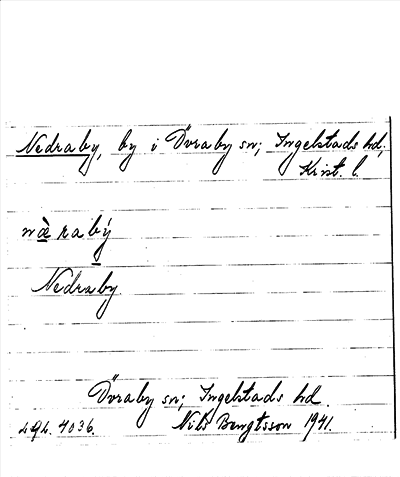 Nedraby, by i Övraby sn; Ingelstads hd,
Krist. l.
næ̀raby̋
Nedraby
Övraby sn; Ingelstads hd.
4036. Nils Bengtsson 1941.